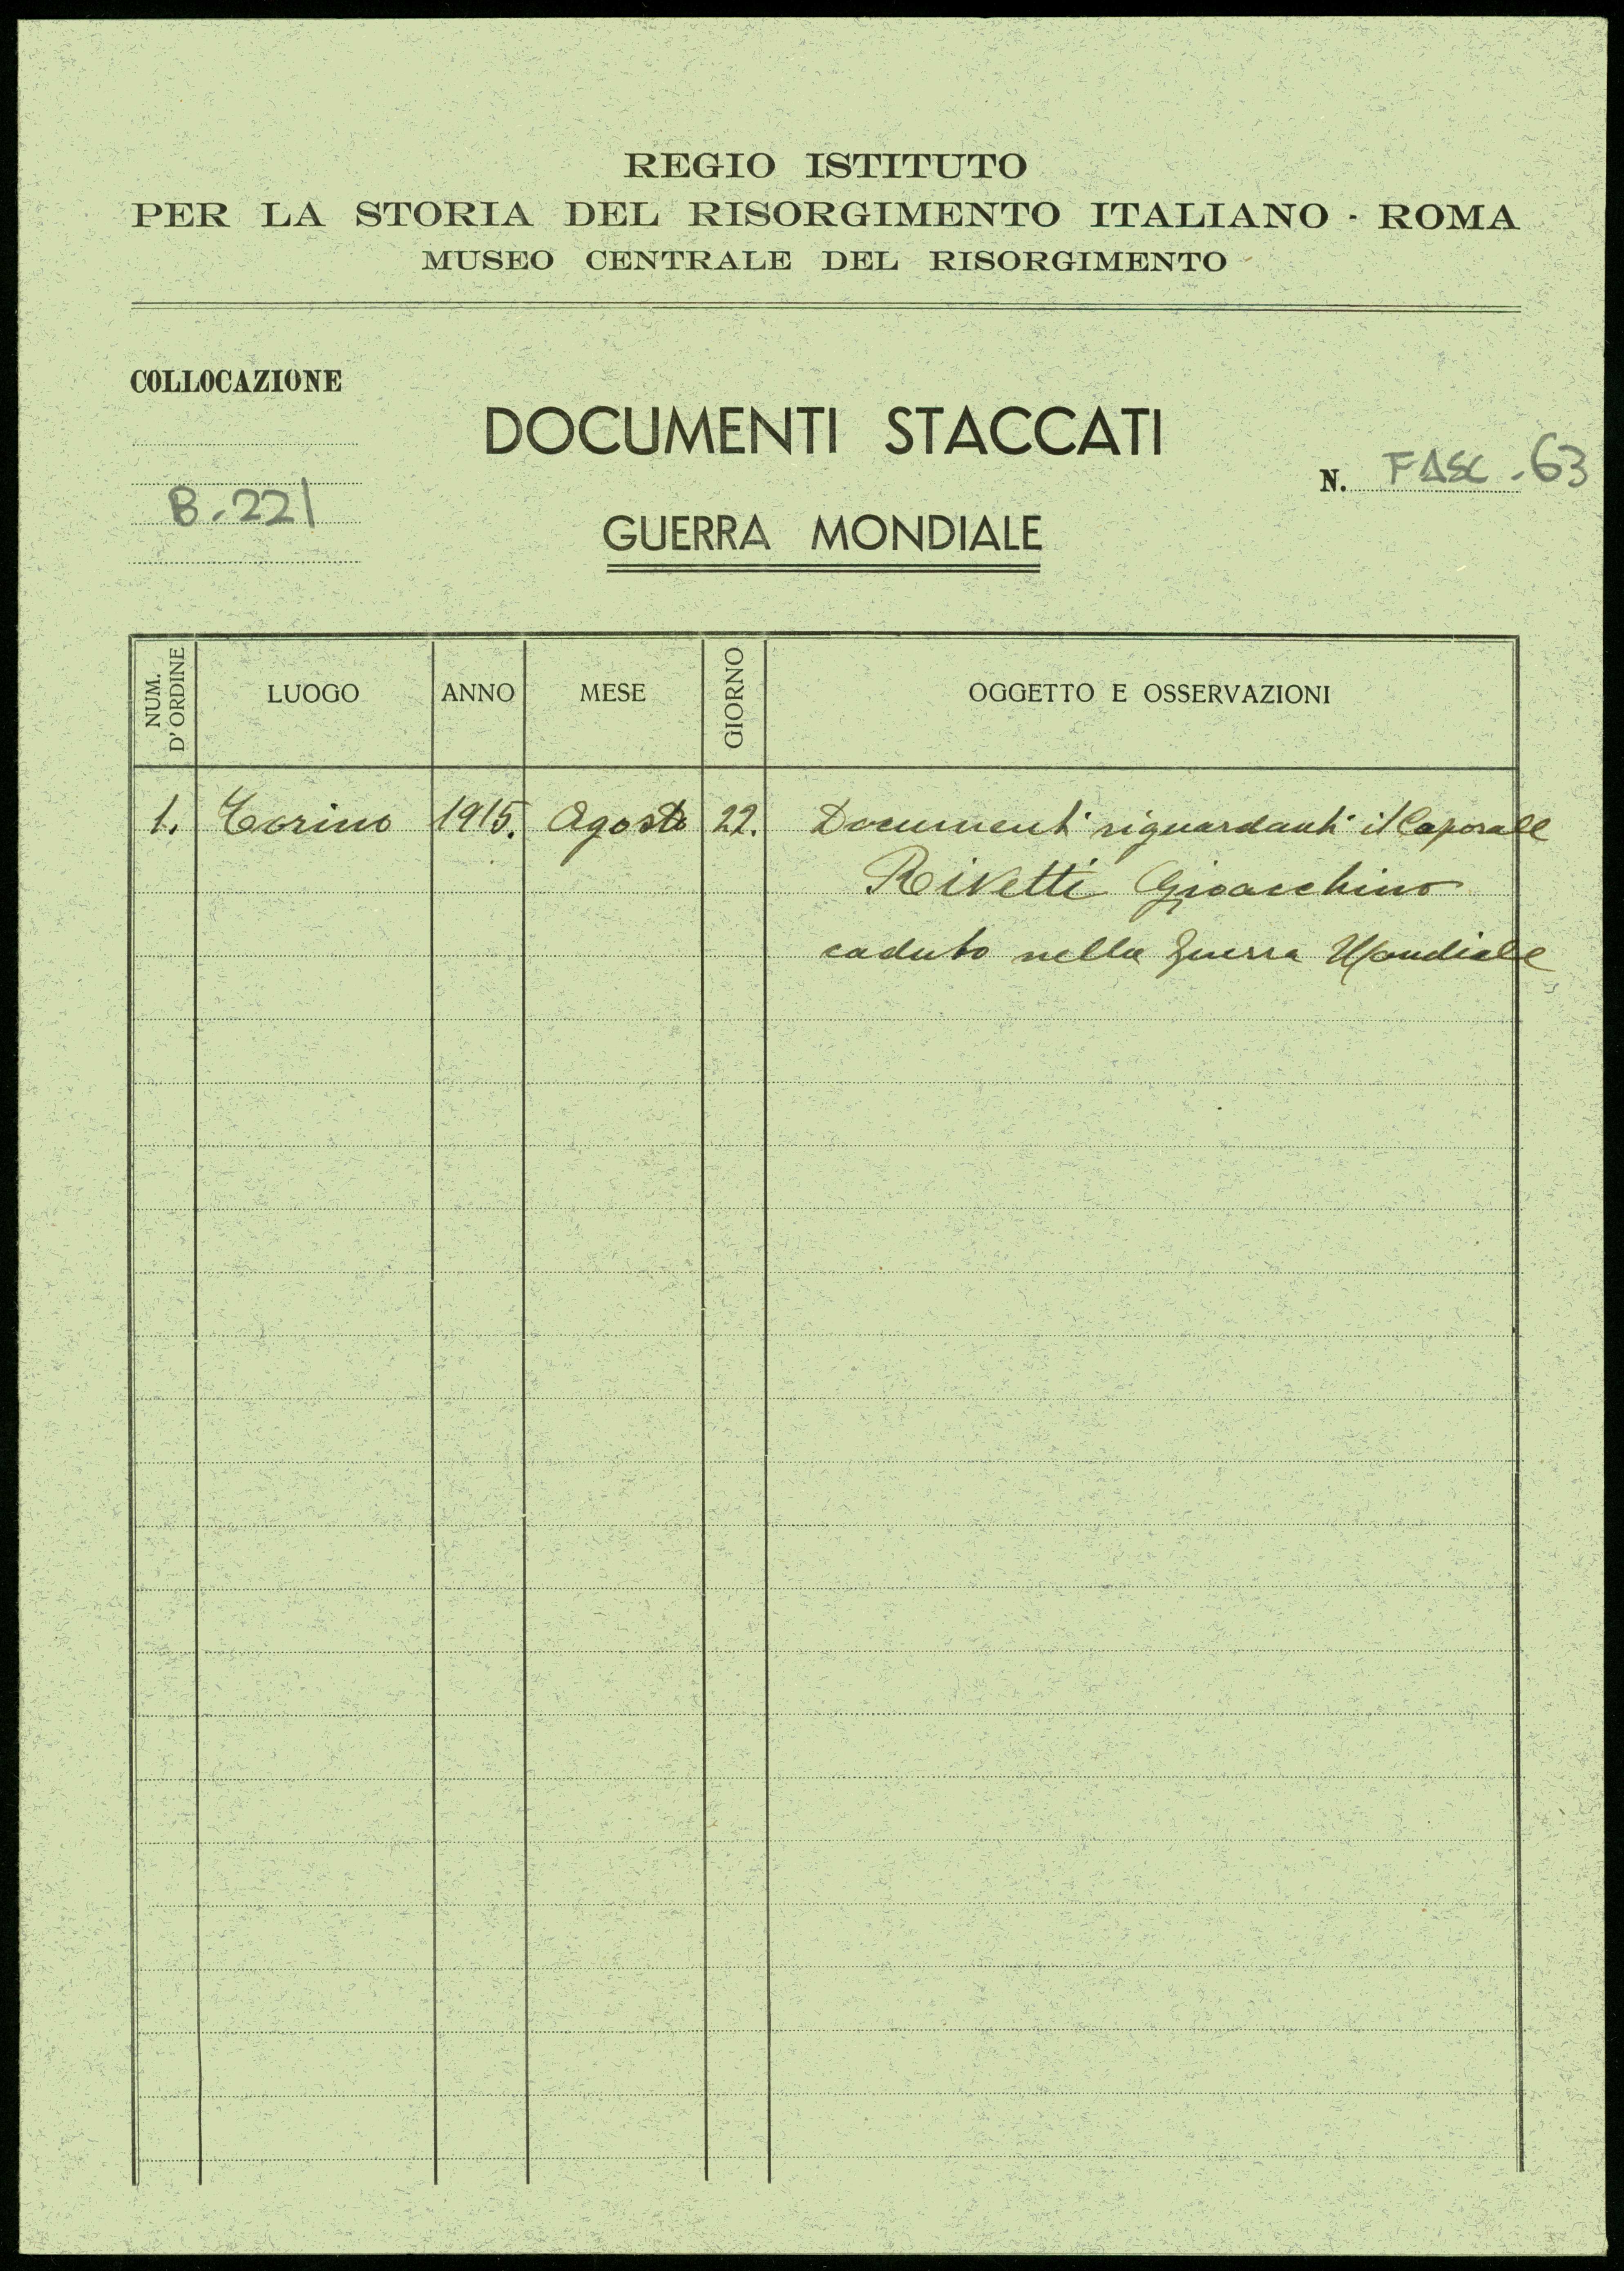 REGIO ISTITUTO
PER LA STORIA DEL RISORGIMENTO ITALIANO - ROMA
MUSEO CENTRALE DEL RISORGIMENTO
COLLOCAZIONE
B. 221
DOCUMENTI STACCATI
GUERRA MONDIALE
N. FASC. 63
NUM. D'ORDINE LUOGO ANNO MESE GIORNO OGGETTO E OSSERVAZIONI
1. Torino 1915. Agosto 22. Documenti riguardanti il Caporale
Rivetti Gioacchino
caduto nella Guerra Mondiale